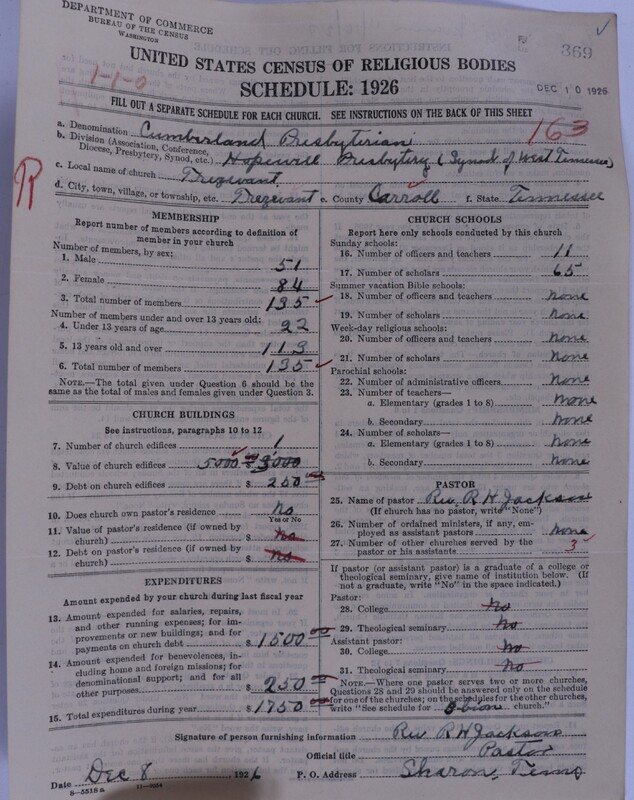 DEPARTMENT OF COMMERCE
BUREAU OF THE CENSUS
WASHINGTON
369
UNITED STATES CENSUS OF RELIGIOUS BODIES
SCHEDULE: 1926
1-1-0
DEC 10 1926
FILL OUT A SEPARATE SCHEDULE FOR EACH CHURCH. SEE INSTRUCTIONS ON THE BACK OF THIS SHEET
163
R
a. Denomination Cumberland Presbyterian
b. Division (Association, Conference, Diocese, Presbytery, Synod, etc.) Hopewell Presbytery (Synod of West Tennessee)
c. Local name of church Trezevant
d. City, town, village, or township, etc. Trezevant e. County Carroll f. State Tennessee
MEMBERSHIP
Report number of members according to definition of
member in your church
Number of members, by sex:
1. Male 51
2. Female 84
3. Total number of members 135
Number of members under and over 13 years old:
4. Under 13 years of age 22
5. 13 years old and over 113
6. Total number of members 135
NOTE.—The total given under Question 6 should be
same as the total of males and females given under Question 3.
CHURCH BUILDINGS
See instructions, paragraphs 10 to 12
7. Number of church edifices 1
8. Value of church edifices 5000 $ 3000
9. Debt on church edifices $ 250
10. Does church own pastor's residence No
Yes or No
11. Value of pastor's residence (if owned by
church) $ no
12. Debt on pastor's residence (if owned by
church) $ no
EXPENDITURES
Amount expended by your church during last fiscal year
13. Amount expended for salaries, repairs,
and other running expenses; for im-
provements or new buildings; and for
payments on church debt $ 1500 00
14. Amount expended for benevolences, in-
cluding home and foreign missions; for
denominational support; and for all
other purposes $ 250 00
15. Total expenditures during year $ 1750 00
CHURCH SCHOOLS
Report here only schools conducted by this church
Sunday schools:
16. Number of officers and teachers 11
17. Number of scholars 65
Summer vacation Bible schools:
18. Number of officers and teachers none
19. Number of scholars none
Week-day religious schools:
20. Number of officers and teachers none
21. Number of scholars none
Parochial schools:
22. Number of administrative officers none
23. Number of teachers—
a. Elementary (grades 1 to 8) none
b. Secondary none
24. Number of scholars—
a. Elementary (grades 1 to 8) none
b. Secondary none
PASTOR
25. Name of pastor Rev. R H Jackson
(If church has no pastor, write "None")
26. Number of ordained ministers, if any, em-
ployed as assistant pastors none
27. Number of other churches served by the
pastor or his assistants 3
If pastor (or assistant pastor) is a graduate of a college or
theological seminary, give name of institution below. (If
not a graduate, write "No" in the space indicated.)
Pastor:
28. College No
29. Theological seminary No
Assistant pastor:
30. College No
31. Theological seminary No
NOTE.—Where one pastor serves two or more churches,
Questions 28 and 29 should be answered only on the schedule
for one of the churches; on the schedules for the other churches,
write "See schedule for Obion church."
Signature of person furnishing information Rev R H Jackson
Official title Pastor
Date Dec 8 1926 P. O. Address Sharon, Tenn
8—5518 a